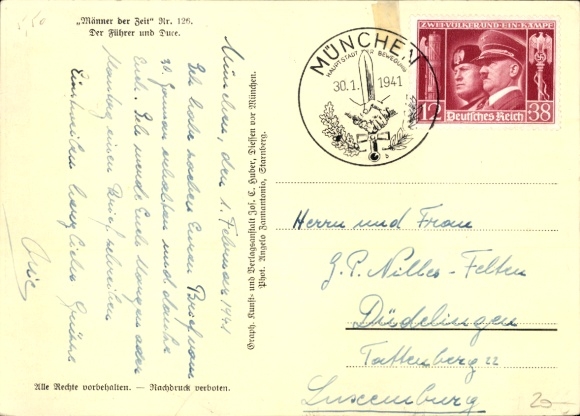 5,50
„Männer der Zeit“ Nr. 126.
Der Führer und Duce.
München, den 1. Februar 1941
Ich habe soeben Euren Brief vom
30. Januar erhalten und danke
Euch. Ich werde Euch Morgen oder
Montag einen Brief schreiben
Einstweilen herzliche Grüsse
Alle Rechte vorbehalten. — Nachdruck verboten.
Graph. Kunst- und Verlagsanstalt Jos. C. Huber, Diessen vor München.
Phot. Angelo Zamantonio, Starnberg.
MÜNCHEN
HAUPTSTADT DER BEWEGUNG
30.1. 1941
b
ZWEI VÖLKER UND EIN KAMPF
12 Deutsches Reich 38
Herrn und Frau
J. P. Nilles-Felten
Düdelingen
Tattenberg 22
Luxemburg
20-